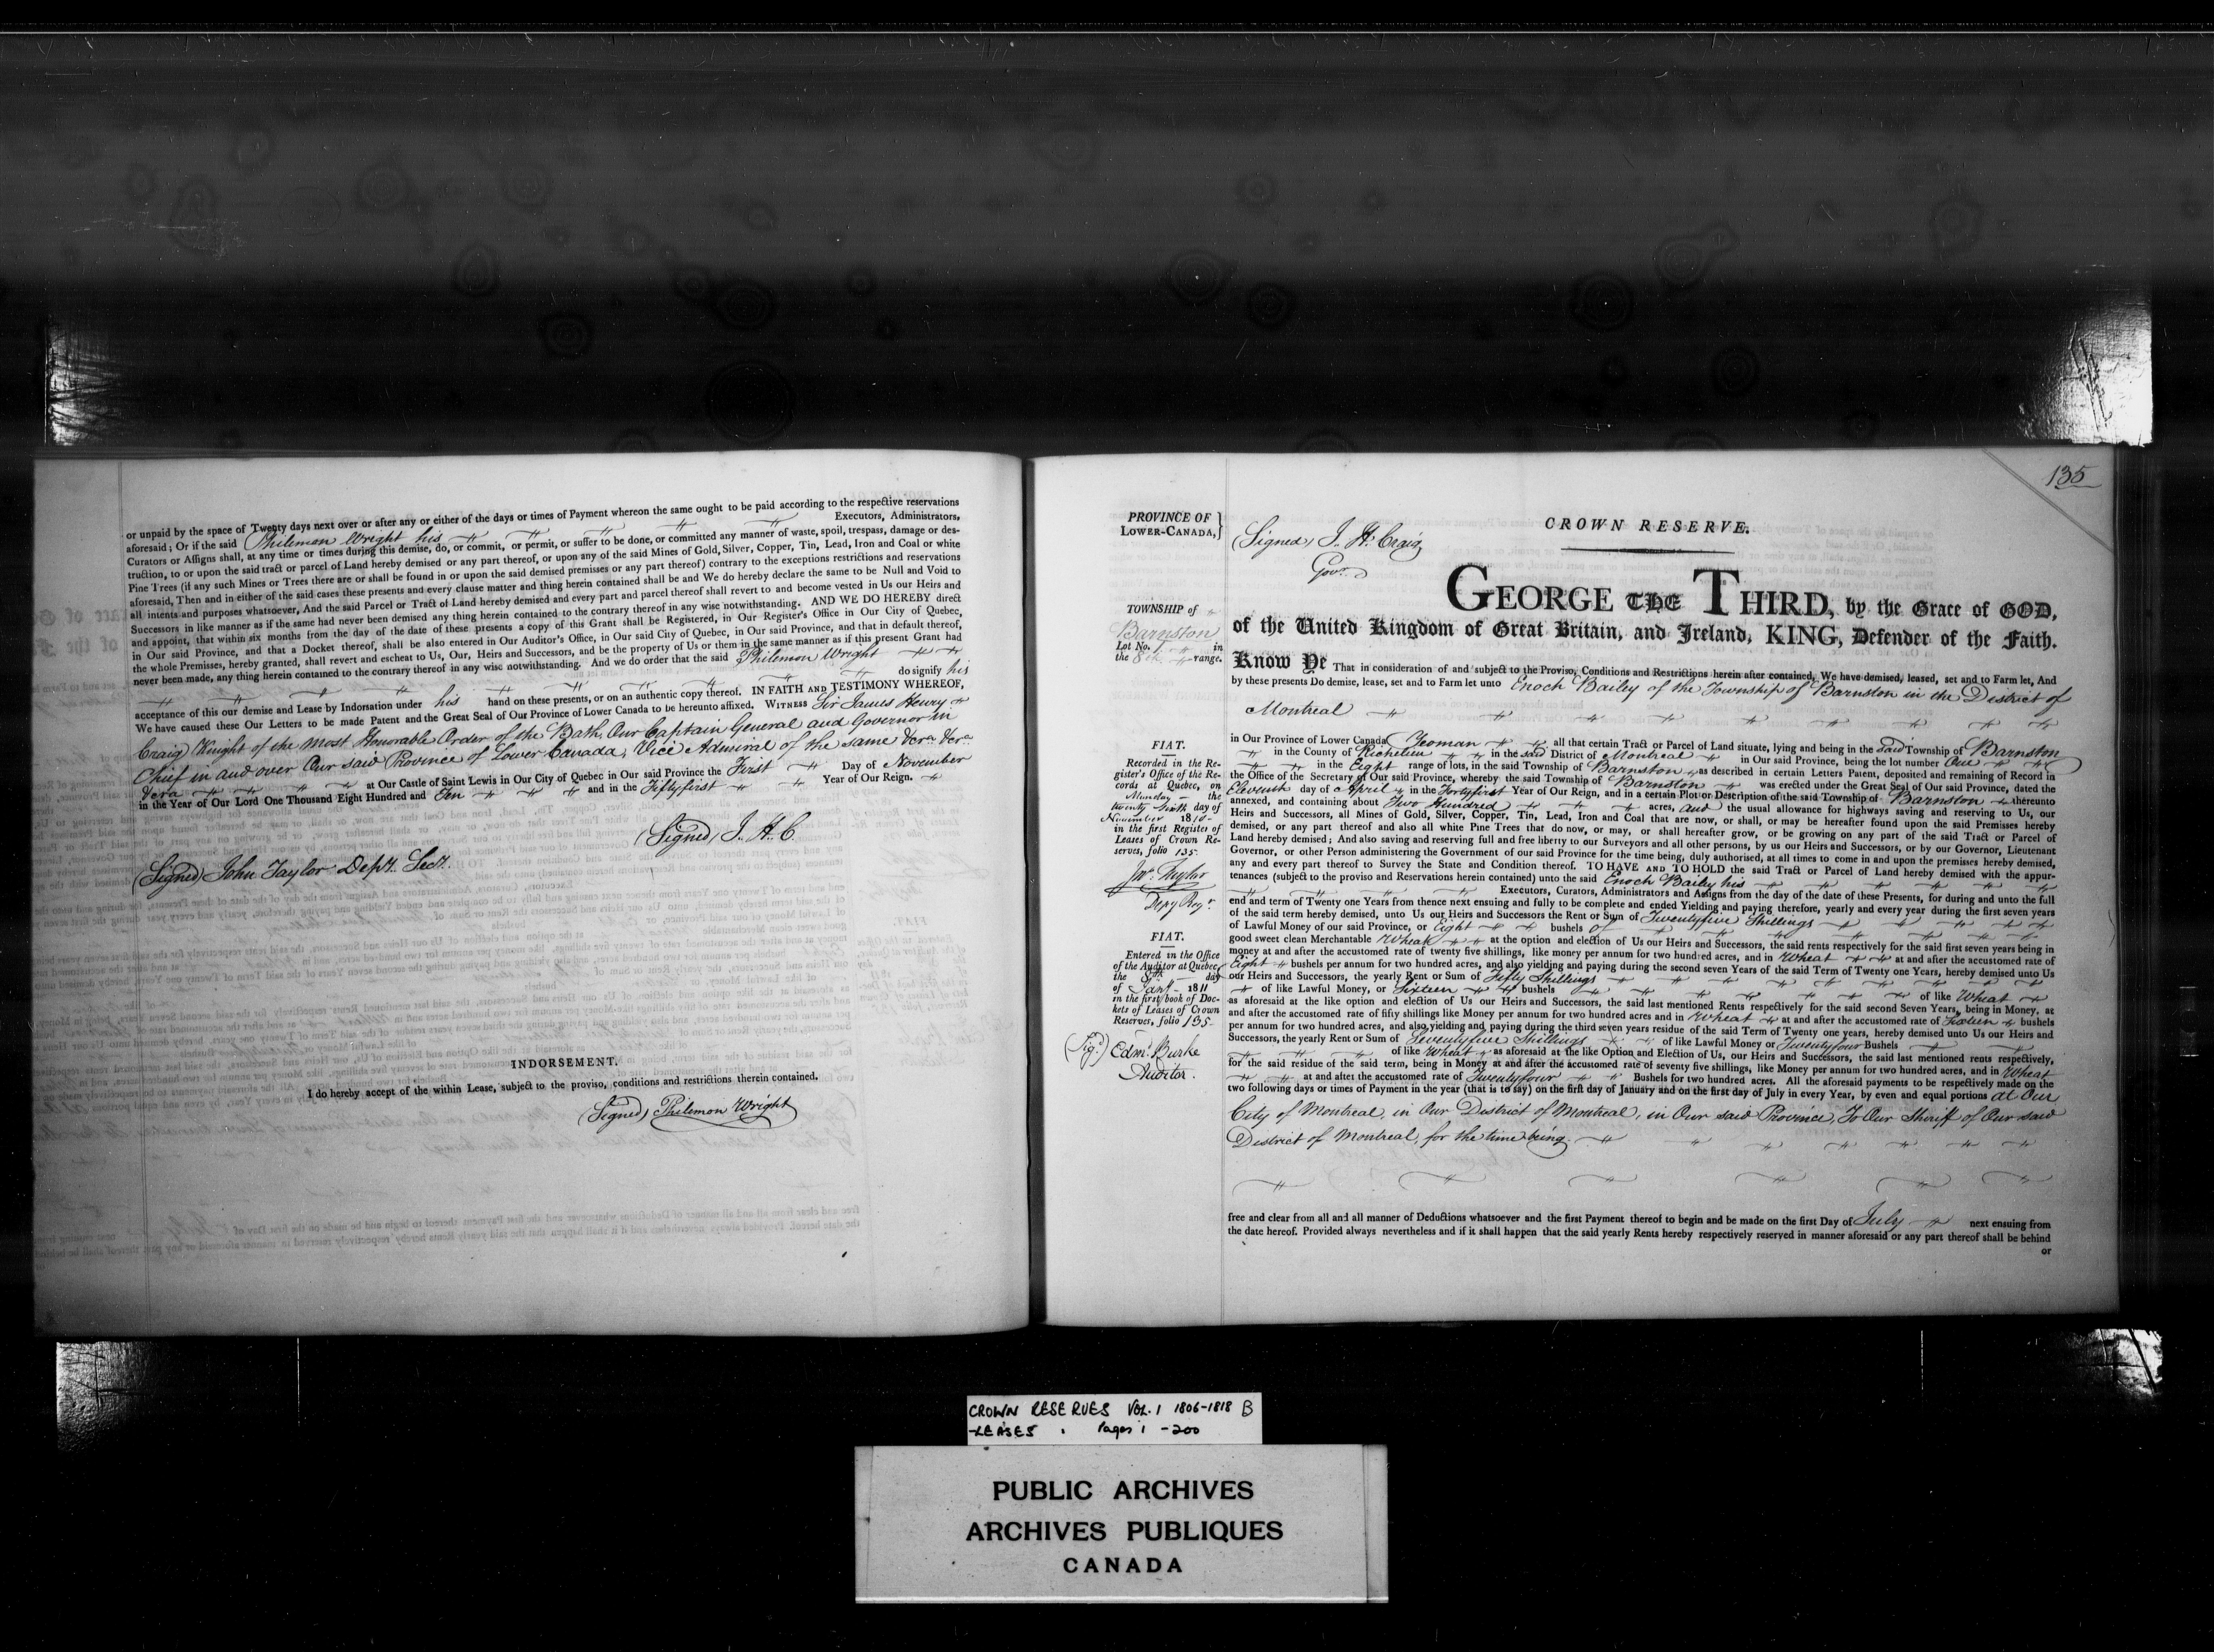 or unpaid by the space of Twenty days next over or after any or either of the days or times of Payment whereon the same ought to be paid according to the respective reservations
aforesaid; Or if the said Philemon Wright his Executors, Administrators,
Curators or Assigns shall, at any time or times during this demise, do, or commit, or permit, or suffer to be done, or committed any manner of waste, spoil, trespass, damage or des-
truction, to or upon the said tract or parcel of Land hereby demised or any part thereof, or upon any of the said Mines of Gold, Silver, Copper, Tin, Lead, Iron and Coal or white
Pine Trees (if any such Mines or Trees there are or shall be found in or upon the said demised premises or any part thereof) contrary to the exceptions restrictions and reservations
aforesaid, Then and in either of the said cases these presents and every clause matter and thing herein contained shall be and We do hereby declare the same to be Null and Void to
all intents and purposes whatsoever, And the said Parcel or Tract of Land hereby demised and every part and parcel thereof shall revert to and become vested in Us our Heirs and
Successors in like manner as if the same had never been demised any thing herein contained to the contrary thereof in any wise notwithstanding. AND WE DO HEREBY direct
and appoint, that within six months from the day of the date of these presents a copy of this Grant shall be Registered, in Our Register's Office in Our City of Quebec,
in Our said Province, and that a Docket thereof, shall be also entered in Our Auditor's Office, in Our said City of Quebec, in Our said Province, and that in default thereof,
the whole Premises, hereby granted, shall revert and escheat to Us, Our, Heirs and Successors, and be the property of Us or them in the same manner as if this present Grant had
never been made, any thing herein contained to the contrary thereof in any wise notwithstanding. And we do order that the said Philemon Wright
do signify his
acceptance of this our demise and Lease by Indorsation under his hand on these presents, or on an authentic copy thereof. IN FAITH AND TESTIMONY WHEREOF,
We have caused these Our Letters to be made Patent and the Great Seal of Our Province of Lower Canada to be hereunto affixed. WITNESS Sir James Henry
Craig Knight of the Most Honorable Order of the Bath, Our Captain General and Governor in
Chief in and over Our said Province of Lower Canada, Vice Admiral of the same &c.ra &c.ra
&c.ra at Our Castle of Saint Lewis in Our City of Quebec in Our said Province the First Day of November
in the Year of Our Lord One Thousand Eight Hundred and Ten and in the Fiftyfirst Year of Our Reign.
(Signed) J. H. C.
(Signed) John Taylor Depy. Secy.
INDORSEMENT.
I do hereby accept of the within Lease, subject to the proviso, conditions and restrictions therein contained.
(Signed) Philemon Wright
135
PROVINCE OF
LOWER-CANADA,
(Signed) J. H. Craig
Govr.
CROWN RESERVE.
TOWNSHIP of
Barnston
Lot No. 1 in
the 8th range.
GEORGE THE THIRD, by the Grace of GOD,
of the United Kingdom of Great Britain, and Ireland, KING, Defender of the Faith.
Know Ye That in consideration of and subject to the Proviso, Conditions and Restrictions herein after contained, We have demised, leased, set and to Farm let, And
by these presents Do demise, lease, set and to Farm let unto Enoch Bailey of the Township of Barnston in the District of
Montreal
in Our Province of Lower Canada Yeoman all that certain Tract or Parcel of Land situate, lying and being in the said Township of Barnston
in the County of Richelieu in the said District of Montreal in Our said Province, being the lot number One
in the Eight range of lots, in the said Township of Barnston as described in certain Letters Patent, deposited and remaining of Record in
the Office of the Secretary of Our said Province, whereby the said Township of Barnston was erected under the Great Seal of Our said Province, dated the
Eleventh day of April in the Fortyfirst Year of Our Reign, and in a certain Plot or Description of the said Township of Barnston thereunto
annexed, and containing about Two Hundred acres, and the usual allowance for highways saving and reserving to Us, our
Heirs and Successors, all Mines of Gold, Silver, Copper, Tin, Lead, Iron and Coal that are now, or shall, or may be hereafter found upon the said Premises hereby
demised, or any part thereof and also all white Pine Trees that do now, or may, or shall hereafter grow, or be growing on any part of the said Tract or Parcel of
Land hereby demised; And also saving and reserving full and free liberty to our Surveyors and all other persons, by us our Heirs and Successors, or by our Governor, Lieutenant
Governor, or other Person administering the Government of our said Province for the time being, duly authorised, at all times to come in and upon the premises hereby demised,
any and every part thereof to Survey the State and Condition thereof. TO HAVE AND TO HOLD the said Tract or Parcel of Land hereby demised with the appur-
tenances (subject to the proviso and Reservations herein contained) unto the said Enoch Bailey his
Executors, Curators, Administrators and Assigns from the day of the date of these Presents, for during and unto the full
end and term of Twenty one Years from thence next ensuing and fully to be complete and ended Yielding and paying therefore, yearly and every year during the first seven years
of the said term hereby demised, unto Us our Heirs and Successors the Rent or Sum of Twentyfive Shillings
of Lawful Money of our said Province, or Eight bushels of
good sweet clean Merchantable Wheat at the option and election of Us our Heirs and Successors, the said rents respectively for the said first seven years being in
money at and after the accustomed rate of twenty five shillings, like money per annum for two hundred acres, and in Wheat at and after the accustomed rate of
Eight bushels per annum for two hundred acres, and also yielding and paying during the second seven Years of the said Term of Twenty one Years, hereby demised unto Us
our Heirs and Successors, the yearly Rent or Sum of Fifty Shillings
of like Lawful Money, or Sixteen bushels of like Wheat
as aforesaid at the like option and election of Us our Heirs and Successors, the said last mentioned Rents respectively for the said second Seven Years, being in Money, at
and after the accustomed rate of fifty shillings like Money per annum for two hundred acres and in Wheat at and after the accustomed rate of Sixteen bushels
per annum for two hundred acres, and also yielding and paying during the third seven years residue of the said Term of Twenty one years, hereby demised unto Us our Heirs and
Successors, the yearly Rent or Sum of Seventyfive Shillings of like Lawful Money or Twentyfour Bushels
of like Wheat as aforesaid at the like Option and Election of Us, our Heirs and Successors, the said last mentioned rents respectively,
for the said residue of the said term, being in Money at and after the accustomed rate of seventy five shillings, like Money per annum for two hundred acres, and in Wheat
at and after the accustomed rate of Twentyfour Bushels for two hundred acres. All the aforesaid payments to be respectively made on the
two following days or times of Payment in the year (that is to say) on the first day of January and on the first day of July in every Year, by even and equal portions at Our
City of Montreal, in Our District of Montreal, in Our said Province, To Our Sheriff of Our said
District of Montreal, for the time being.
free and clear from all and all manner of Deductions whatsoever and the first Payment thereof to begin and be made on the first Day of July next ensuing from
the date hereof. Provided always nevertheless and if it shall happen that the said yearly Rents hereby respectively reserved in manner aforesaid or any part thereof shall be behind
or
FIAT.
Recorded in the Re-
gister's Office of the Re-
cords at Quebec, on
Munday the
twenty sixth day of
November 1810
in the first Register of
Leases of Crown Re-
serves, folio 135
Jno. Taylor
Depy Regr.
FIAT.
Entered in the Office
of the Auditor at Quebec
the 8th day
of Jany 1811
in the first book of Doc-
kets of Leases of Crown
Reserves, folio 135
(Sigd) Edmd. Burke
Auditor.
CROWN RESERVES VOL. 1 1806-1818 B
-LEASES . Pages 1 - 200
PUBLIC ARCHIVES
ARCHIVES PUBLIQUES
CANADA